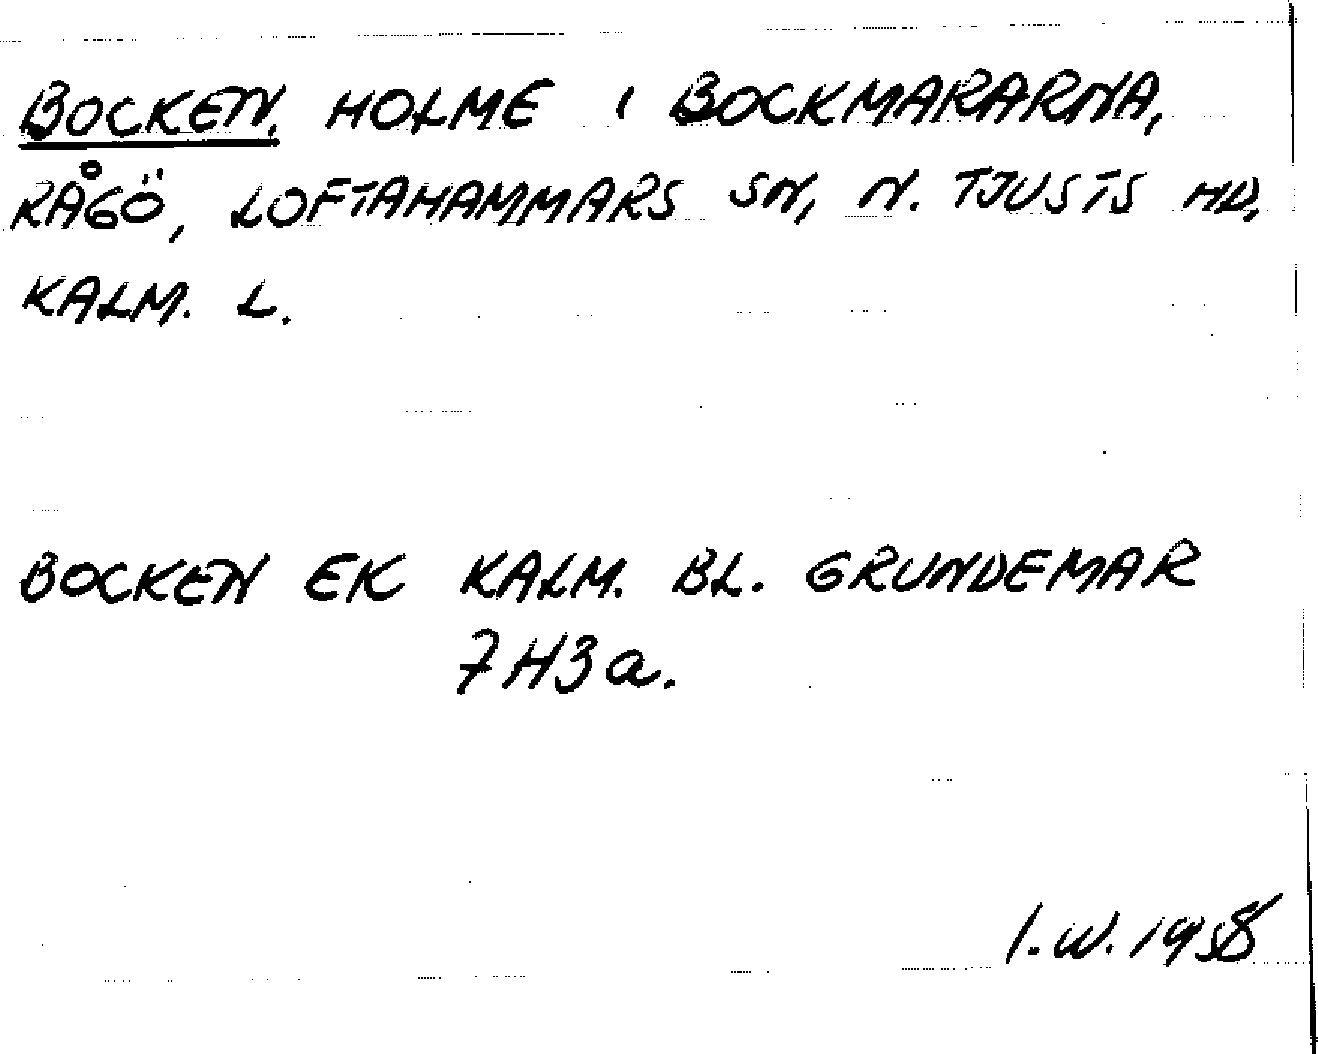 BOCKEN. HOLME I BOCKMARARNA,
RÅGÖ, LOFTAHAMMARS SN, N. TJUSTS HD,
KALM. L.
BOCKEN EK KALM. BL. GRUNDEMAR
7H3a.
I.W. 1958